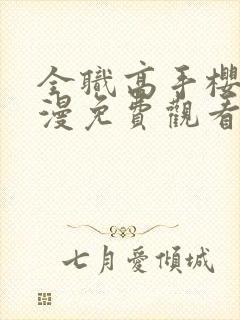 全職高手櫻
漫免費觀看
七月愛傾城